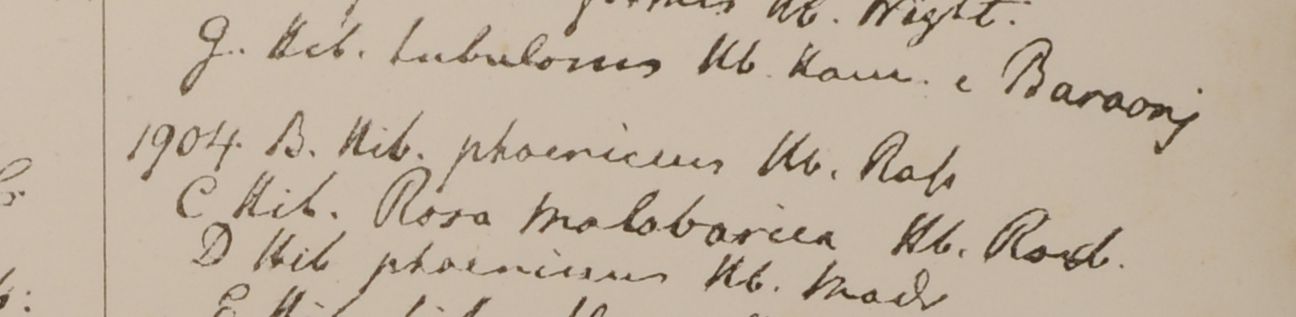 Hb. Wight.
G. Hib. tubulosus Hb. Ham. e Baraonj
1904. B. Hib. phoeniceus Hb. Rofs
C Hib. Rosa malabarica Hb. Roxb.
D Hib phoeniceus Hb. Madr
E Hib